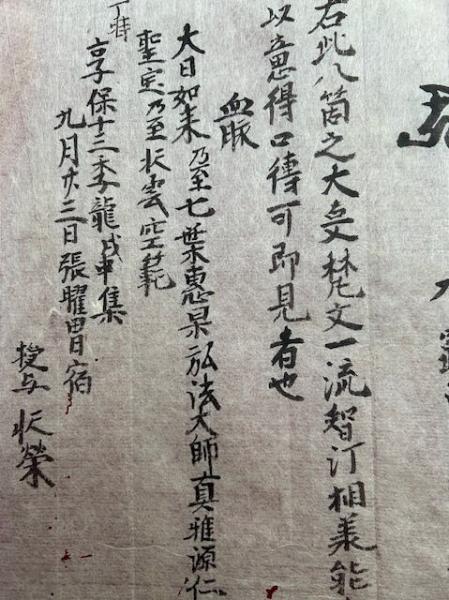 右此八箇之大㕝梵文一流智汀相承能
以意得口傳可即見者也
血脈
大日如来乃至七葉惠杲弘法大師真雅源仁
聖宝乃至快雲空範
于時
享保十三季龍戊申集
九月廿三日張曜宿
授与快榮